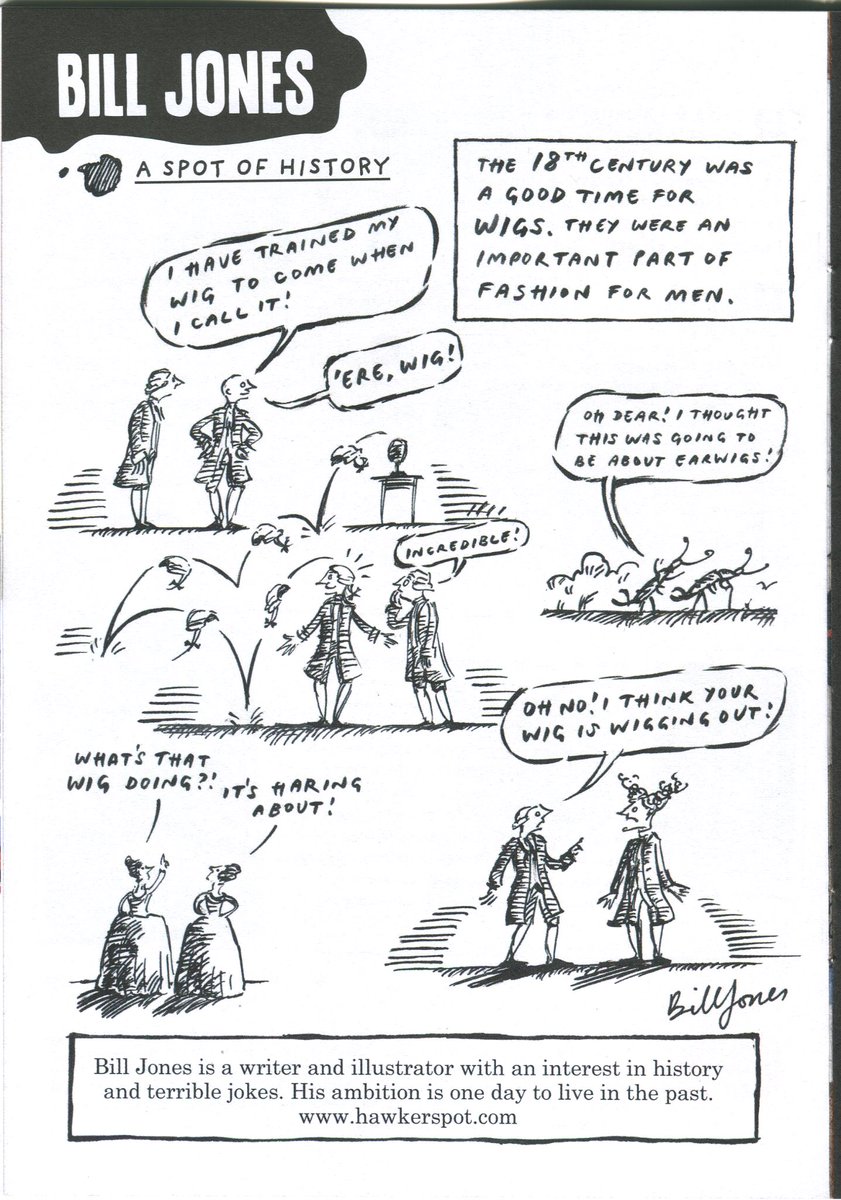 BILL JONES
A SPOT OF HISTORY
THE 18TH CENTURY WAS
A GOOD TIME FOR
WIGS. THEY WERE AN
IMPORTANT PART OF
FASHION FOR MEN.
I HAVE TRAINED MY
WIG TO COME WHEN
I CALL IT!
'ERE, WIG!
OH DEAR! I THOUGHT
THIS WAS GOING TO
BE ABOUT EARWIGS!
INCREDIBLE!
OH NO! I THINK YOUR
WIG IS WIGGING OUT!
WHAT'S THAT
WIG DOING?!
IT'S HARING
ABOUT!
Bill Jones
Bill Jones is a writer and illustrator with an interest in history
and terrible jokes. His ambition is one day to live in the past.
www.hawkerspot.com